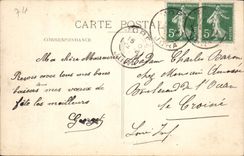 74
CARTE POSTALE
5c 5c
CORRESPONDANCE
Ma chère
Recevez avec tous mes bons
baisers mes vœux de
fête les meilleurs
Madame Charles Baron
chez Monsieur
Boulevard de l'Océan
Le Croisic
Loire Infre